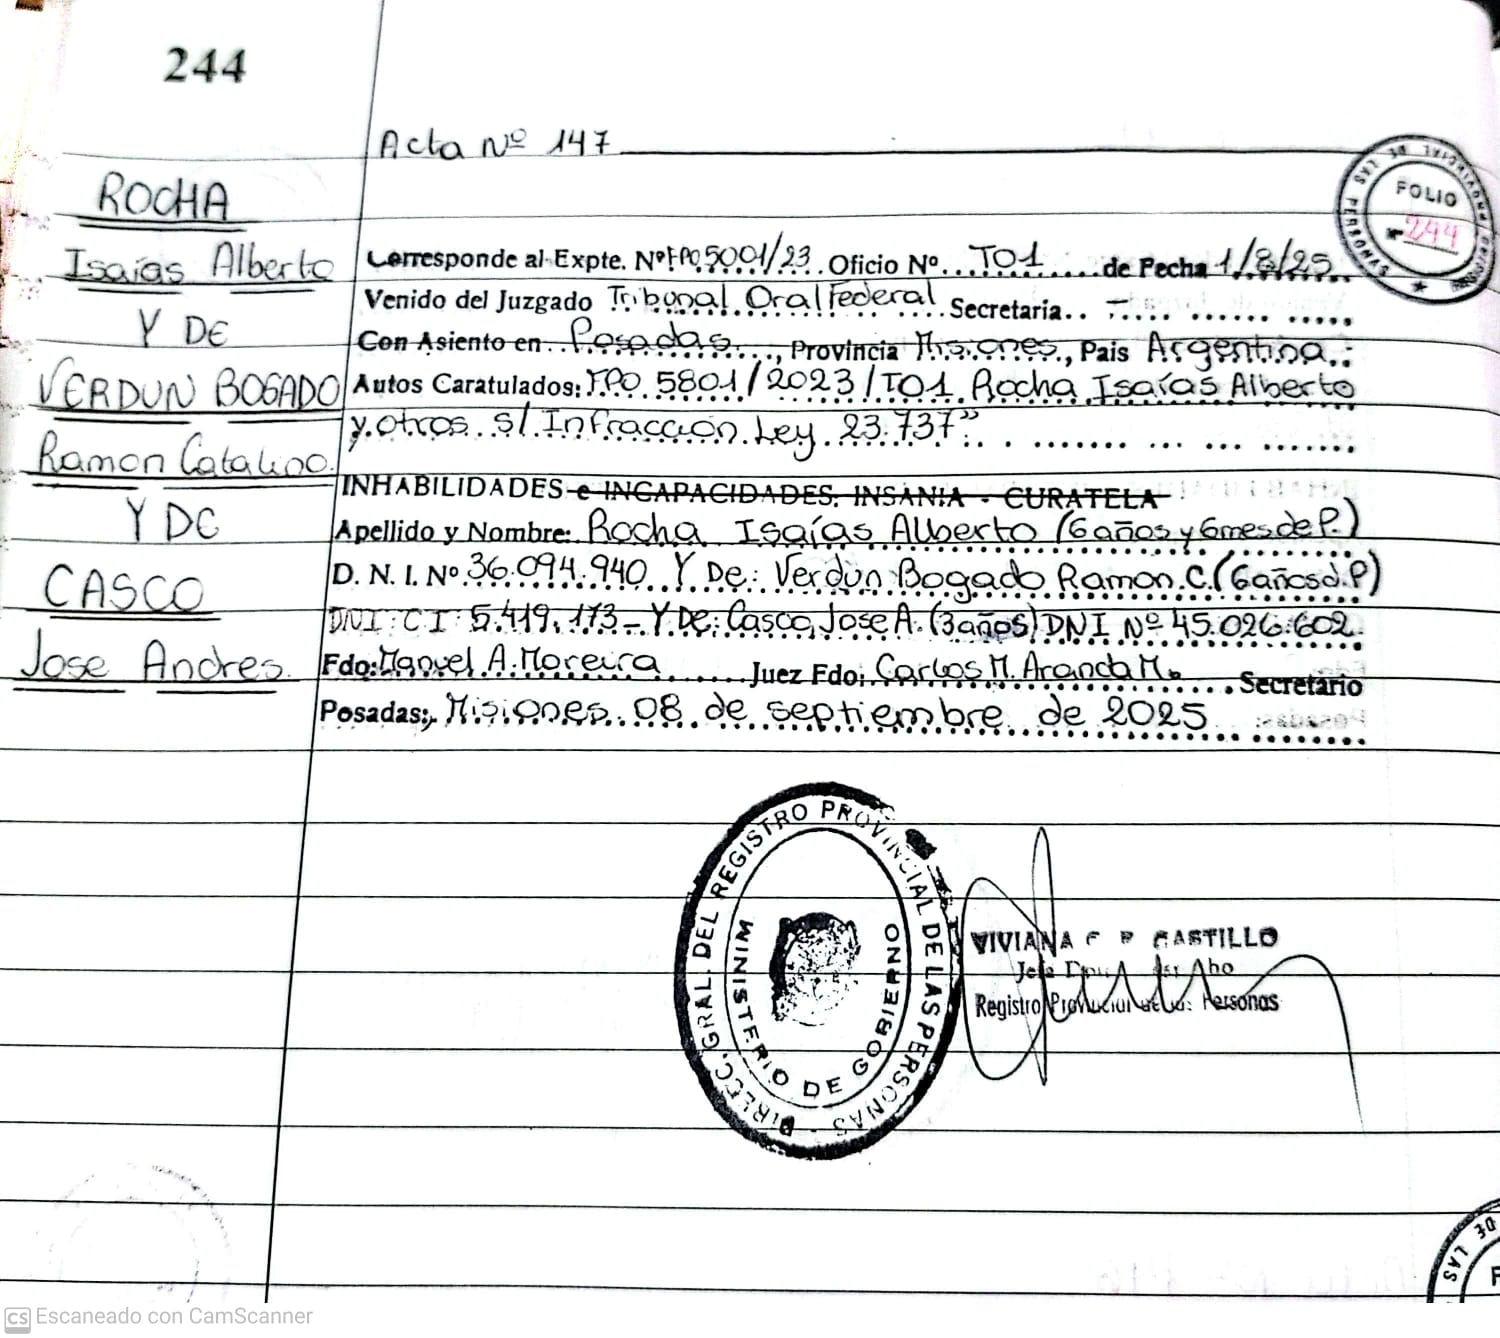 244
Acta Nº 147
ROCHA
Isaías Alberto
Y DE
VERDUN BOGADO
Ramon Catalino.
Y DE
CASCO
Jose Andres.
FOLIO
244
PROVINCIAL DE LAS PERSONAS
Corresponde al Expte. Nº FPO 5001/23. Oficio Nº... TO1 ....de Fecha 1/8/25
Venido del Juzgado Tribunal Oral Federal Secretaria.. - ....
Con Asiento en.. Posadas..., Provincia Misiones., Pais Argentina..
Autos Caratulados: FPO 5801/2023/TO1. Rocha Isaías Alberto
y otros s/ Infracción Ley 23.737"
INHABILIDADES e INCAPACIDADES. INSANIA - CURATELA
Apellido y Nombre: Rocha Isaías Alberto (6 años y 6 mes de P.)
D. N. I. Nº 36.094.940. Y De: Verdun Bogado Ramon C. (6 años d. P)
DNI: CI: 5.419.173 - Y De: Casco, Jose A. (3 años) DNI Nº 45.026.602.
Fdo: Manuel A. Moreira ......Juez Fdo: Carlos M. Aranda M. ....Secretario
Posadas:, Misiones.. 08 de septiembre de 2025
DIREC. GRAL. DEL REGISTRO PROVINCIAL DE LAS PERSONAS -
MINISTERIO DE GOBIERNO
VIVIANA CASTILLO
Registro Provincial de las Personas
DE LAS
CS Escaneado con CamScanner